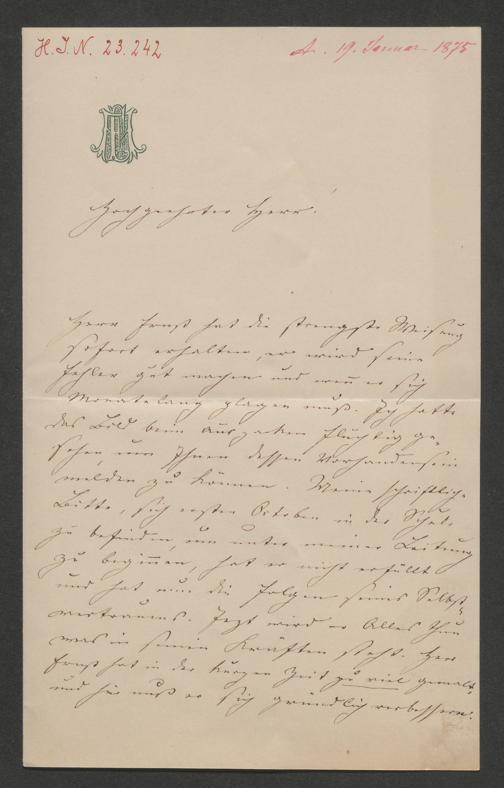 H. I. N. 23.242
A. 19. Januar 1875
Hochgeehrter Herr!
Herr Ernst hat die strengste Weisung
sofort erhalten, er wird seine
Fehler gut machen und wenn er sich
Monatelang plagen muß. Ich hatte
das Bild beim Auspacken flüchtig ge-
sehen, um Ihnen dessen Vorhandensein
melden zu können. Meine schriftliche
Bitte, sich ersten October in der
zu befinden, um unter meiner Leitung
zu beginnen, hat er nicht erfüllt
und hat nun die Folgen seines Selbst-
vertrauens. Jezt wird er Alles thun
was in seinen Kräften steht. Herr
Ernst hat in der kurzen Zeit zu viel gemalt,
und hie muß er sich gründlich verbessern.